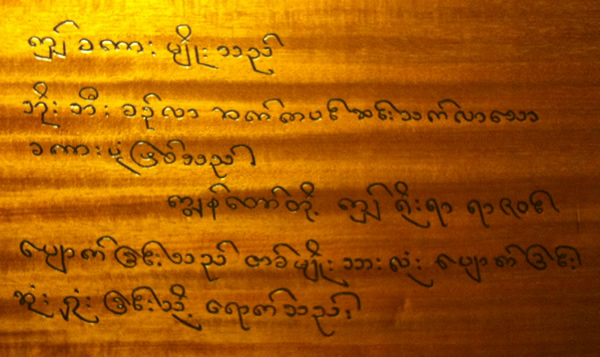 ဤ စကား မျိုး သည်
ဘိုး ဘီး စဉ်လာ ဆက် ဆင်းသက်လာသော
စကားပုံ ဖြစ်သည်။
ကျွန်တော်တို့ ဤ ရိုးရာ ရာဇဝင်
ပျောက်ခြင်းသည် တစ်မျိုးသားလုံး ပျောက်ခြင်း၊
ဆုံးရှုံး ခြင်းသို့ ရောက်သည်။